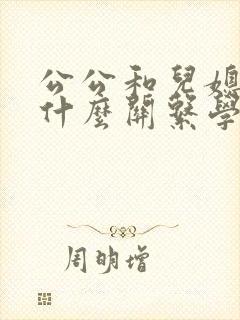 公公和兒媳
什麼關繫學
周明增